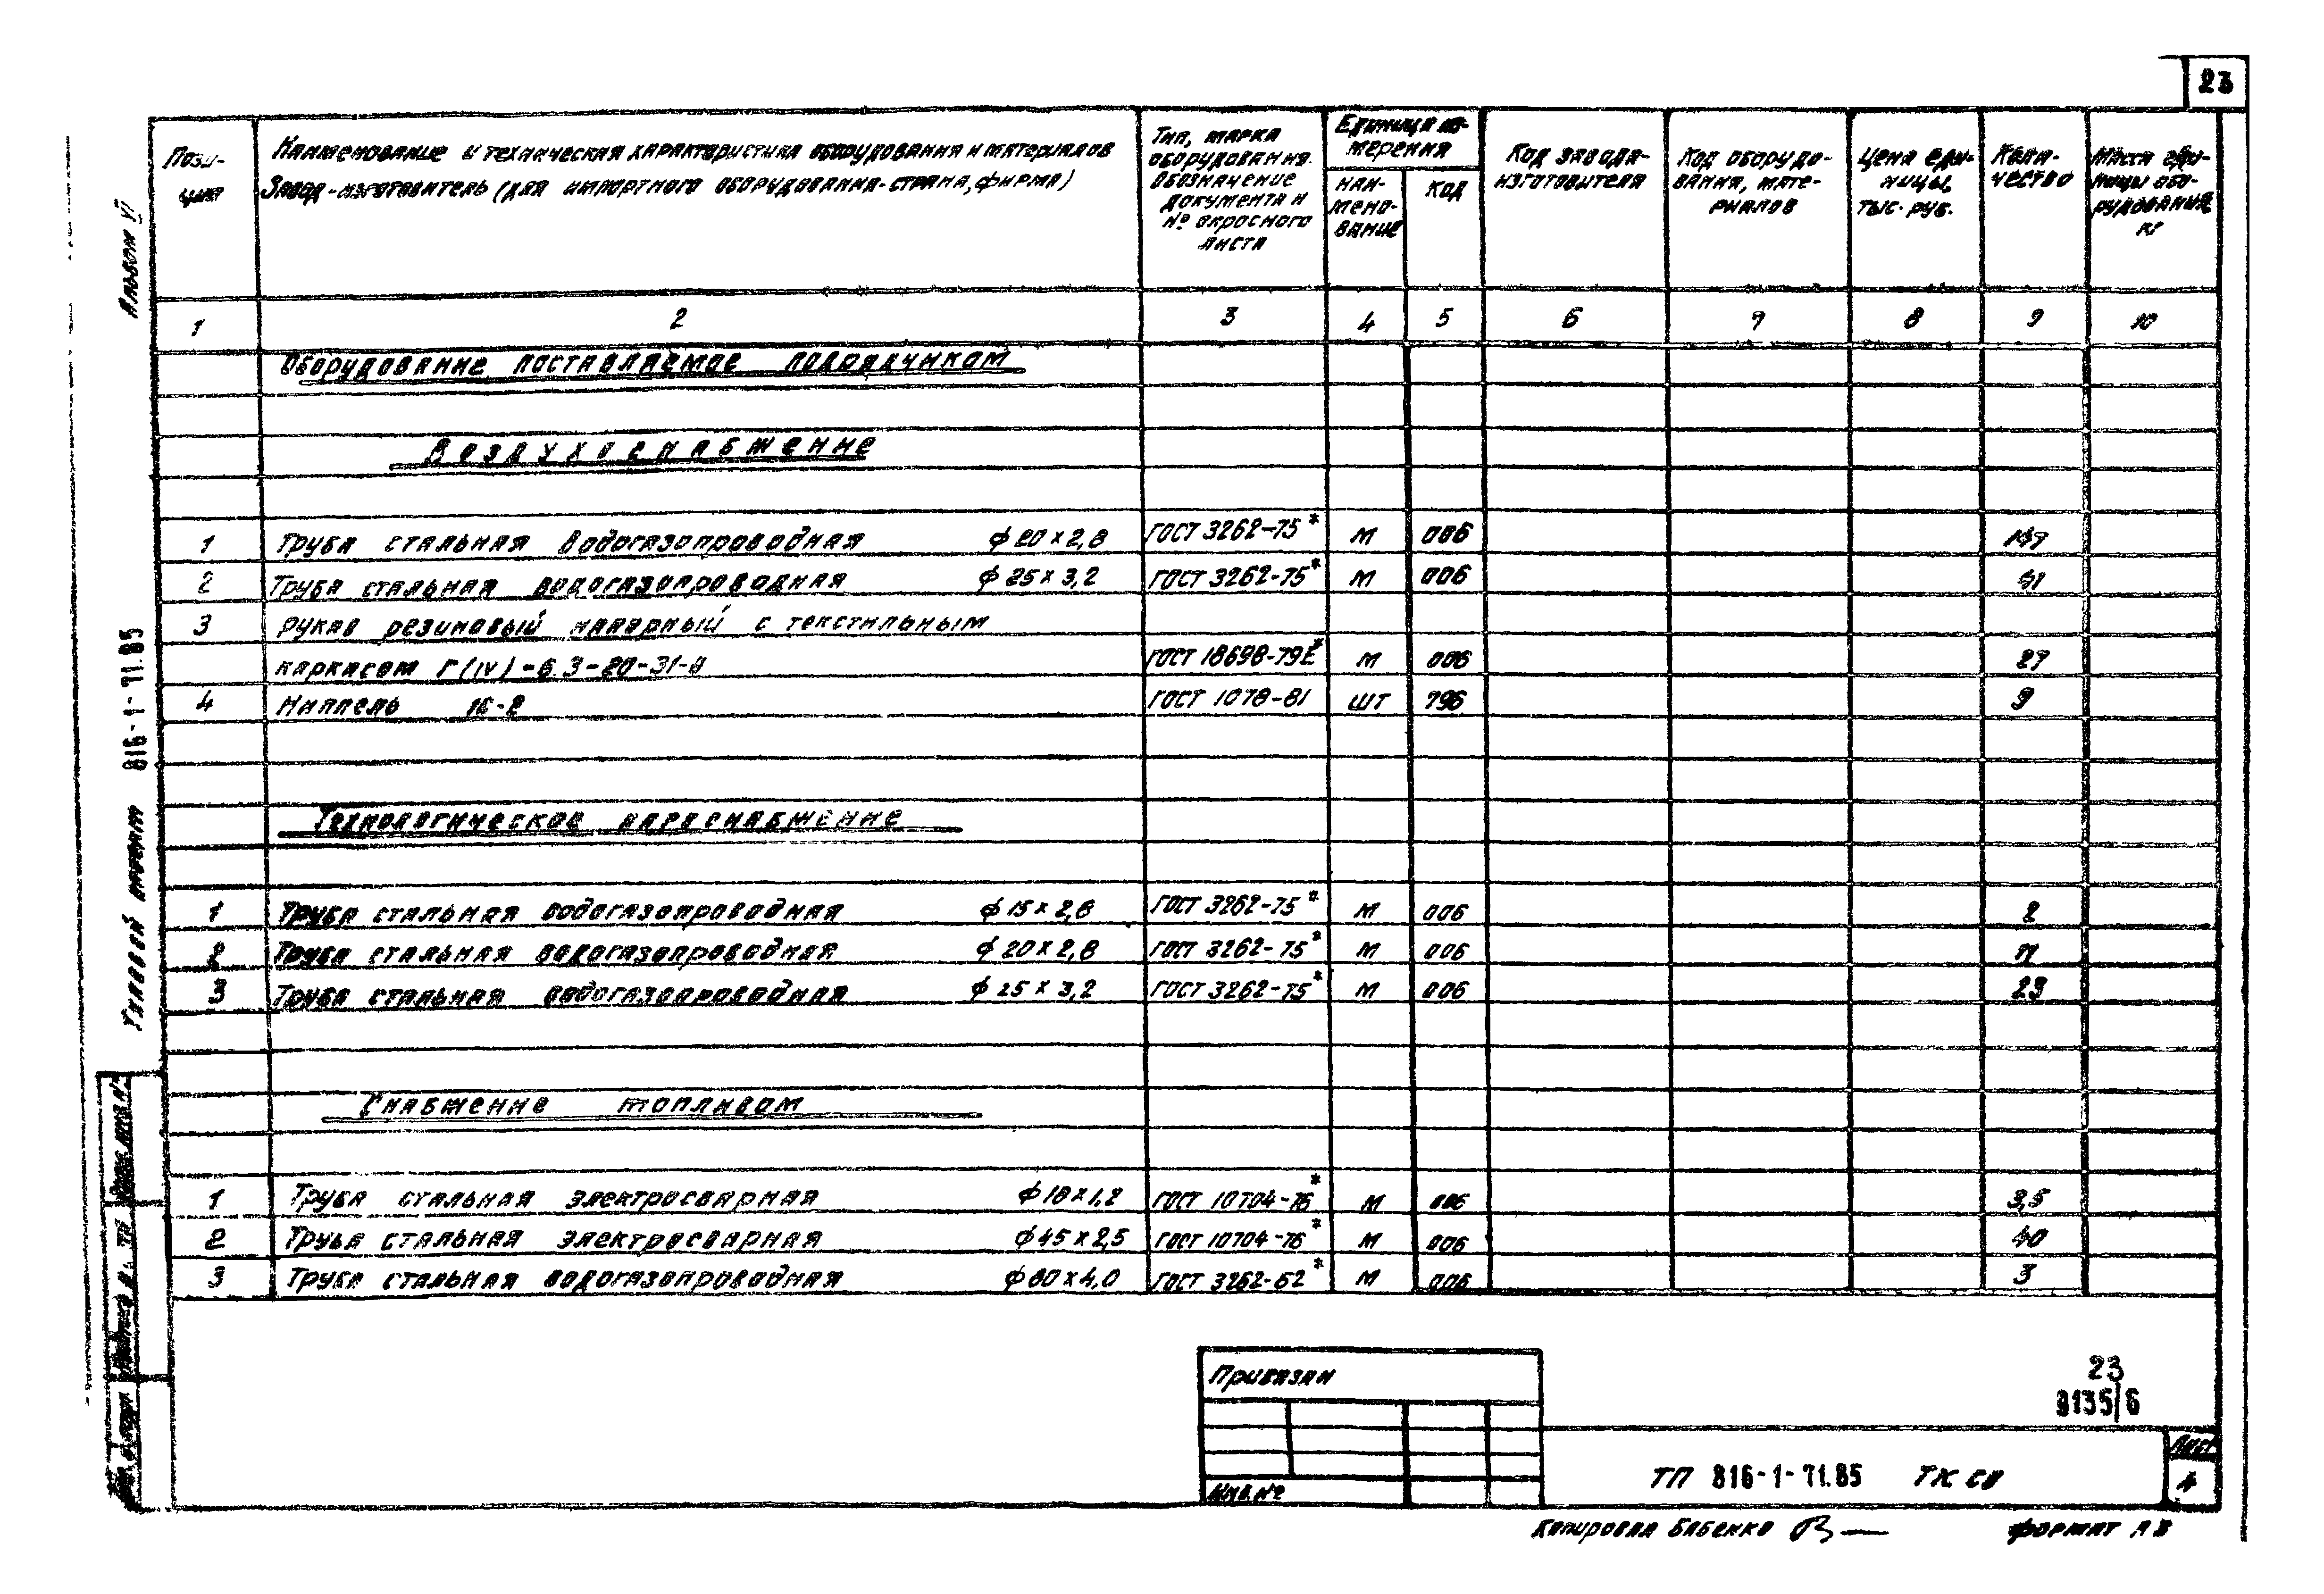 23
Пози-
ция
Наименование и техническая характеристика оборудования и материалов
Завод-изготовитель (для импортного оборудования-страна, фирма)
Тип, марка
оборудования.
Обозначение
документа и
№ опросного
листа
Единица из-
мерения
наи-
мено-
вание
код
Код завода-
изготовителя
Код оборудо-
вания, мате-
риалов
Цена еди-
ницы,
тыс. руб.
Коли-
чество
Масса еди-
ницы обо-
рудования,
кг
1 2 3 4 5 6 7 8 9 10
Оборудование поставляемое подрядчиком
Воздухоснабжение
1 Труба стальная водогазопроводная ϕ 20 × 2,8 ГОСТ 3262-75* м 006
2 Труба стальная водогазопроводная ϕ 25 × 3,2 ГОСТ 3262-75* м 006
3 Рукав резиновый напорный с текстильным
каркасом Г(IV)-6.3-20-31-У ГОСТ 18698-79Е* м 006 27
4 Ниппель 16-2 ГОСТ 1078-81 шт 796 9
Технологическое пароснабжение
1 Труба стальная водогазопроводная ϕ 15 × 2,8 ГОСТ 3262-75* м 006 2
2 Труба стальная водогазопроводная ϕ 20 × 2,8 ГОСТ 3262-75* м 006 11
3 Труба стальная водогазопроводная ϕ 25 × 3,2 ГОСТ 3262-75* м 006 23
Снабжение топливом
1 Труба стальная электросварная ϕ 18 × 1,2 ГОСТ 10704-76* м 006 3,5
2 Труба стальная электросварная ϕ 45 × 2,5 ГОСТ 10704-76* м 006 40
3 Труба стальная водогазопроводная ϕ 80 × 4,0 ГОСТ 3262-62* м 006 3
Альбом VI
Типовой проект 816-1-71.85
Привязан
Инв. №
23
9135/6
ТП 816-1-71.85 ТХ СО
Лист
4
Копировал Бабенко
Формат А3